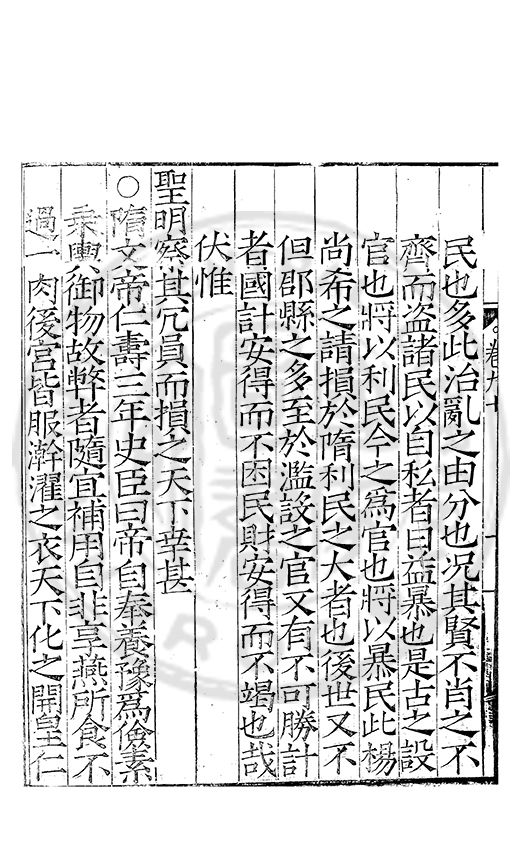 民也多此治亂之由分也况其賢不肖之不
齊而盗諸民以自私者曰益暴也是古之設
官也將以利民今之爲官也將以暴民此楊
尚希之請損於隋利民之大者也後世又不
但郡縣之多至於濫設之官又有不可勝計
者國計安得而不困民財安得而不竭也哉
伏惟
聖明察其冗員而損之天下幸甚
○隋文帝仁壽三年史臣曰帝自奉養務爲儉素
乗輿御物故弊者隨宜補用自非享燕所食不
過一肉後宮皆服澣濯之衣天下化之開皇仁
卷九十